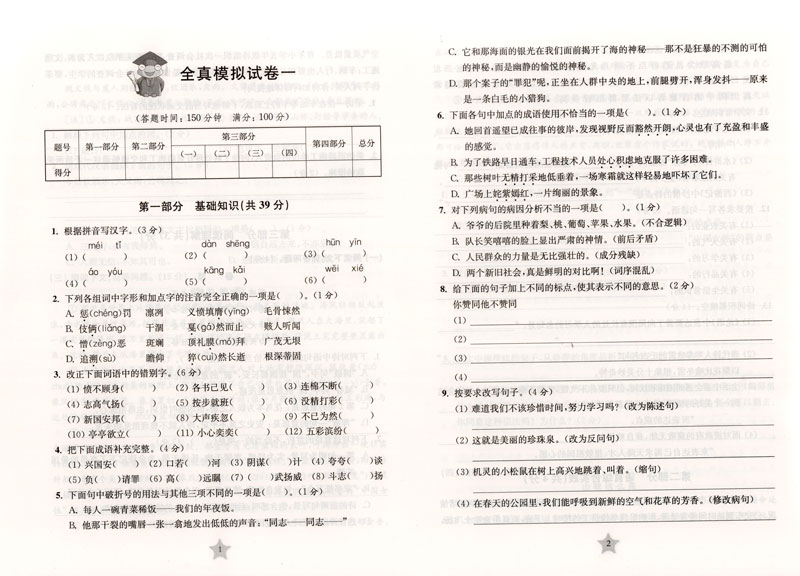 全真模拟试卷一
(答题时间:150分钟 满分:100分)
题号 第一部分 第二部分 第三部分 第四部分 总分
(一) (二) (三) (四)
得分
第一部分 基础知识(共39分)
1. 根据拼音写汉字。(3分)
méi tǐ dàn shēng hūn yīn
(1)( ) (2)( ) (3)( )
áo yóu kāng kǎi wěi xié
(4)( ) (5)( ) (6)( )
2. 下列各组词中字形和加点字的注音完全正确的一项是( )。(1分)
A. 惩(chéng)罚 凛冽 义愤填膺(yīng) 毛骨悚然
B. 伎俩(liǎng) 干涸 戛(gá)然而止 赅人听闻
C. 憎(zēng)恶 斑斓 顶礼膜(mó)拜 广茂无垠
D. 追溯(sù) 瞻仰 猝(cuì)然长逝 根深蒂固
3. 改正下面词语中的错别字。(6分)
(1) 愤不顾身( ) (2) 各书己见( ) (3) 连棉不断( )
(4) 志高气扬( ) (5) 按步就班( ) (6) 没精打彩( )
(7) 新国安邦( ) (8) 大声疾忽( ) (9) 不已为然( )
(10) 亭亭欲立( ) (11) 小心奕奕( ) (12) 五彩滨纷( )
4. 把下面成语补充完整。(4分)
(1) 兴国安( ) (2) 口若( )河 (3) 阴谋( )计 (4) 夸夸( )谈
(5) 负( )请罪 (6) 高( )远瞩 (7) ( )武扬威 (8) 斗志( )扬
5. 下面句中破折号的用法与其他三项不同的一项是( )。(1分)
A. 每人一碗青菜稀饭——我们的年夜饭。
B. 他那干裂的嘴唇一张一翕地发出低低的声音:“同志——同志——”
1
C. 它和那海面的银光在我们面前揭开了海的神秘——那不是狂暴的不测的可怕
的神秘,而是幽静的愉悦的神秘。
D. 那个案子的“罪犯”呢,正坐在人群中央的地上,前腿劈开,浑身发抖——原来
是一条白毛的小猎狗。
6. 下面各句中加点的成语使用不恰当的一项是( )。(1分)
A. 她回首遥望已成往事的彼岸,发现视野反而豁然开朗,心灵也有了充盈和丰盛
的感觉。
B. 为了铁路早日通车,工程技术人员处心积虑地克服了许多困难。
C. 那些树叶无精打采地低垂着,一场寒霜就这样轻易地吓坏了它们。
D. 广场上姹紫嫣红,一片绚丽的景象。
7. 对下列病句的病因分析不当的一项是( )。(1分)
A. 爷爷的后院里种着梨、桃、葡萄、苹果、水果。(不合逻辑)
B. 队长笑嘻嘻的脸上显出严肃的神情。(前后矛盾)
C. 人民群众的力量是无比强壮的。(成分残缺)
D. 两个新旧社会,真是鲜明的对比啊!(词序混乱)
8. 给下面的句子加上不同的标点,使其表示不同的意思。(2分)
你赞同他不赞同
(1)
(2)
(3)
(4)
9. 按要求改写句子。(4分)
(1) 难道我们不该珍惜时间,努力学习吗?(改为陈述句)
(2) 这就是美丽的珍珠泉。(改为反问句)
(3) 机灵的小松鼠在树上高兴地跳着、叫着。(缩句)
(4) 在春天的公园里,我们能呼吸到新鲜的空气和花草的芳香。(修改病句)
2